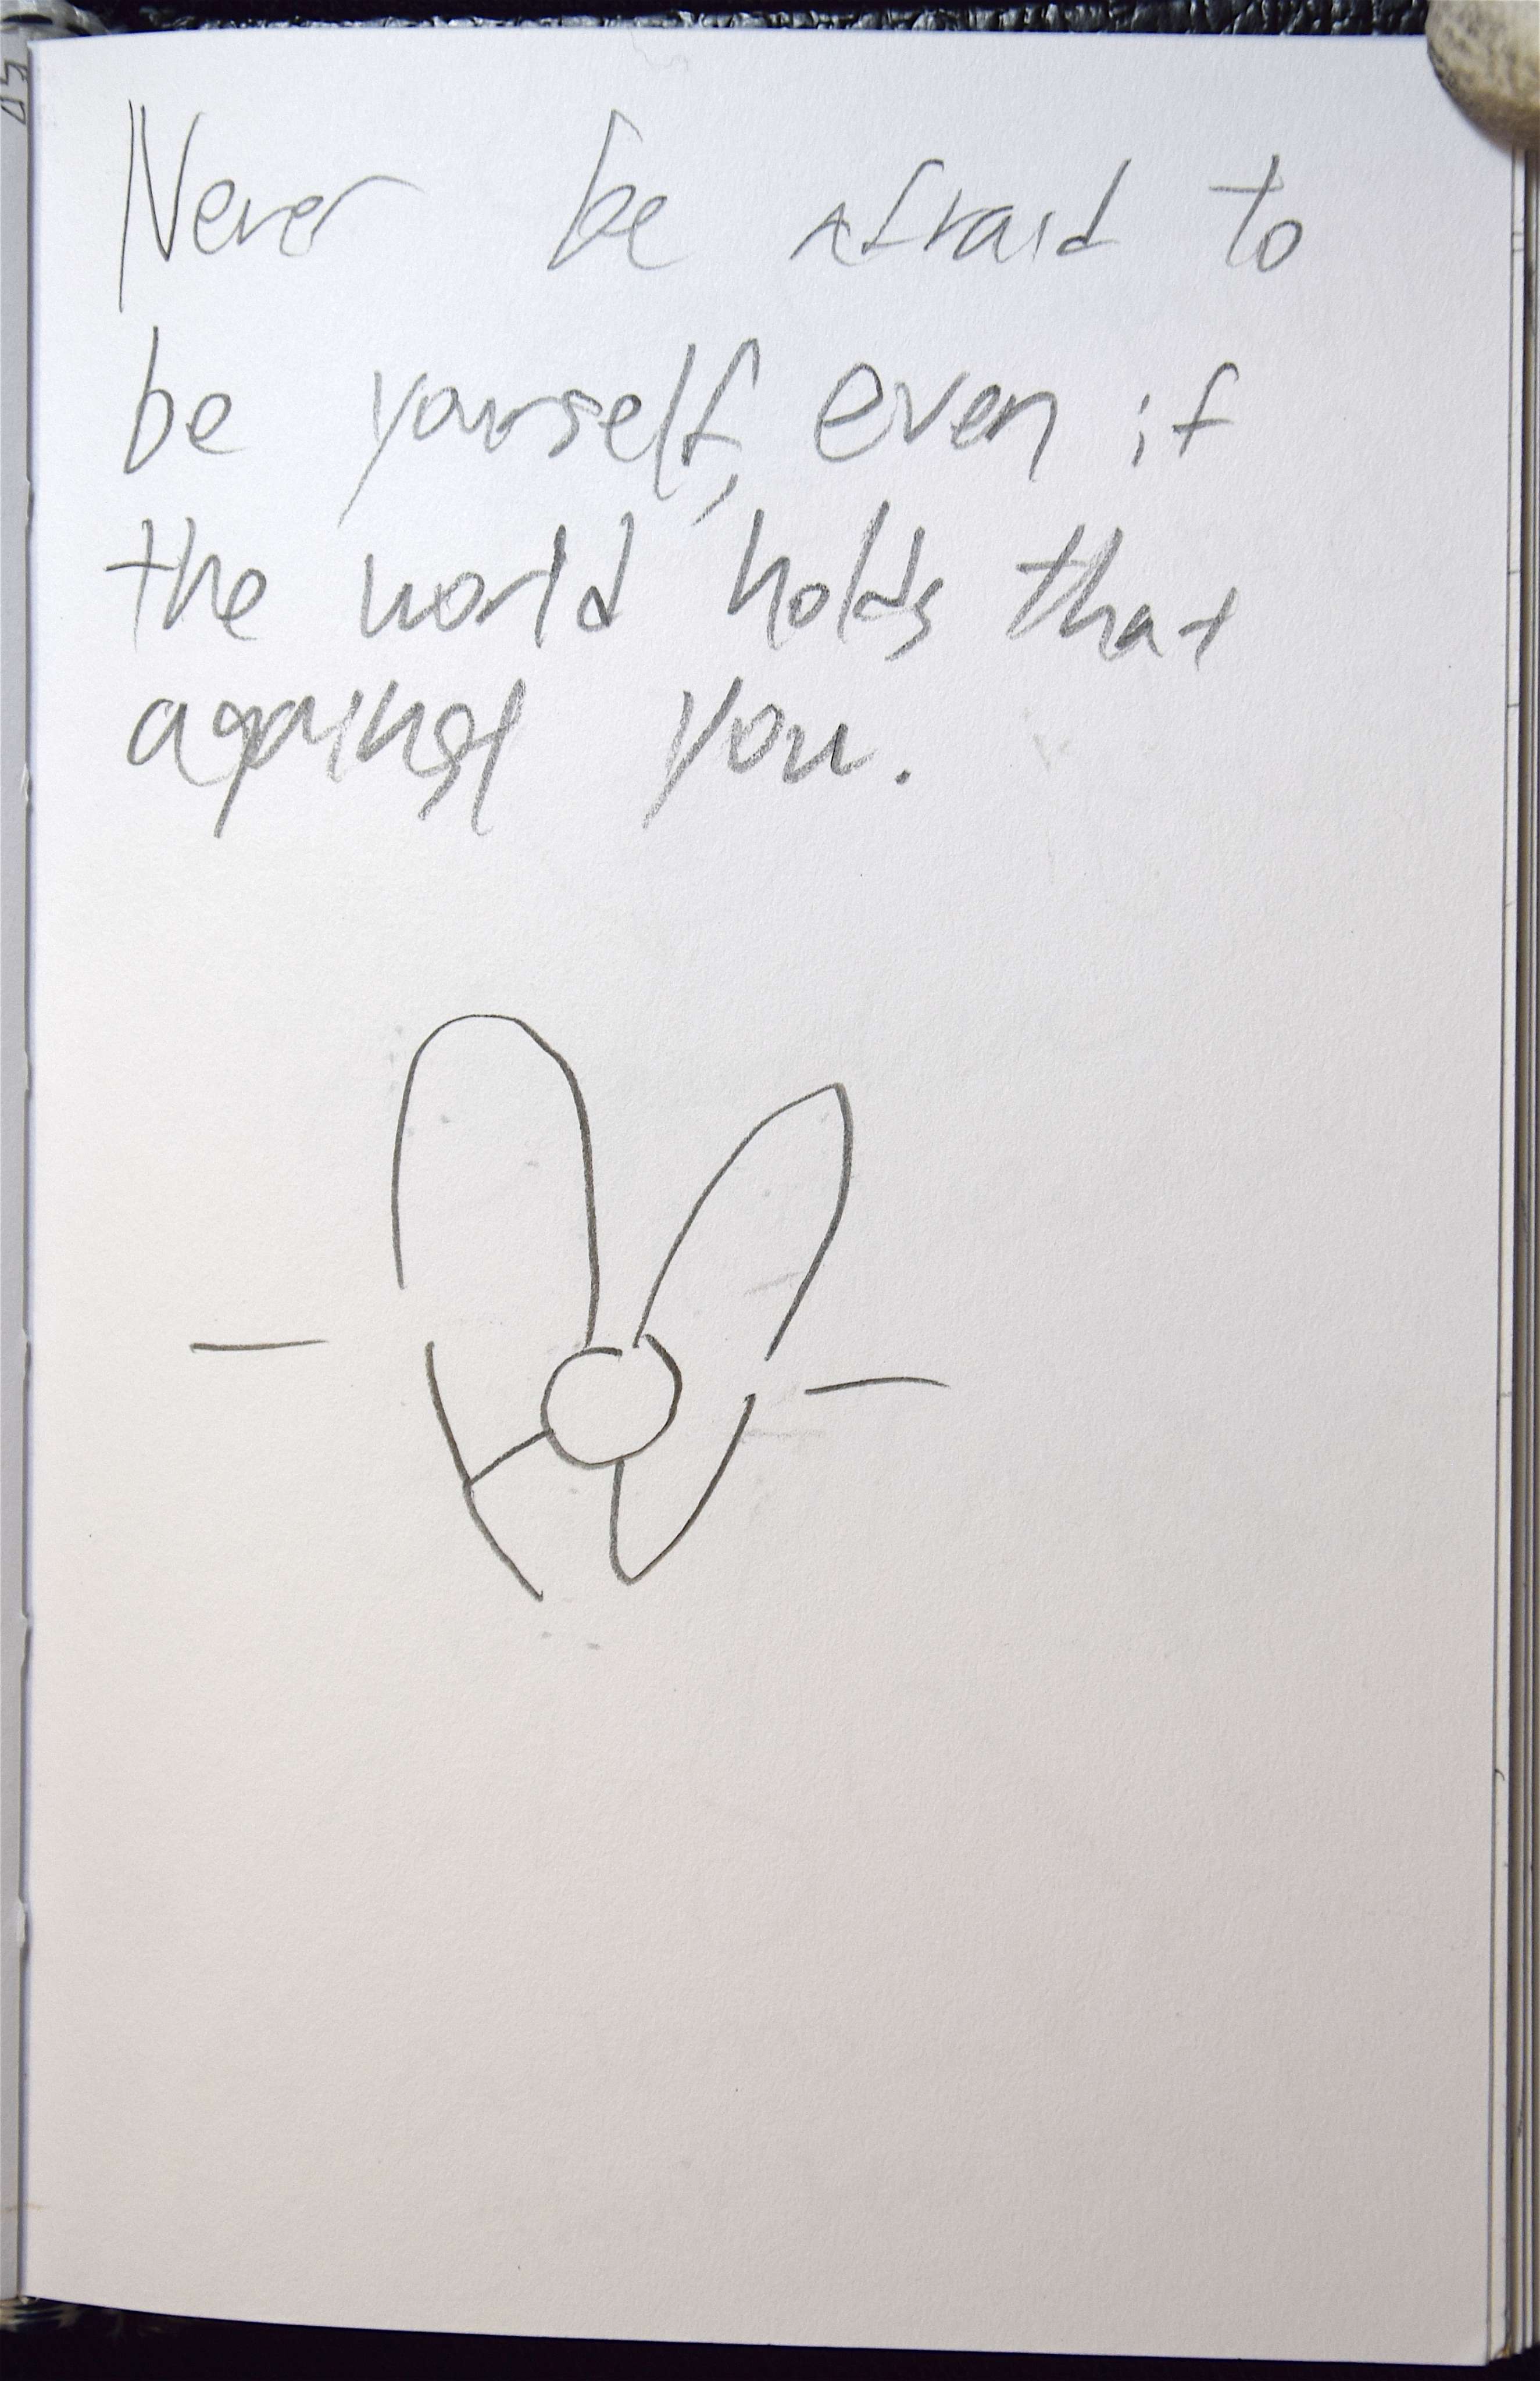 Never be afraid to
be yourself, even if
the world holds that
against you.